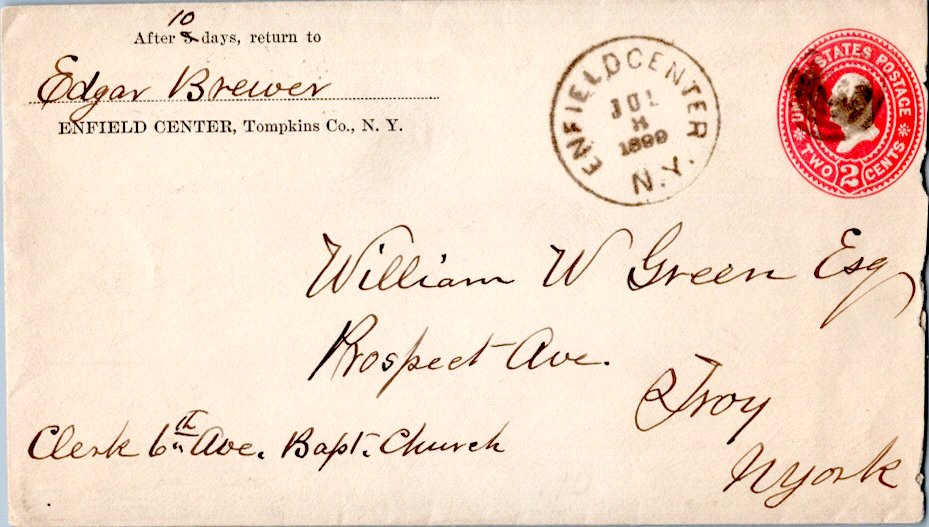 10
After 5 days, return to
Edgar Brewer
ENFIELD CENTER, Tompkins Co., N. Y.
ENFIELD CENTER N.Y.
JUL
1899
UNITED STATES POSTAGE
TWO 2 CENTS
William W Green Esq
Prospect Ave.
Troy
NYork
Clerk 6th Ave. Bapt. Church